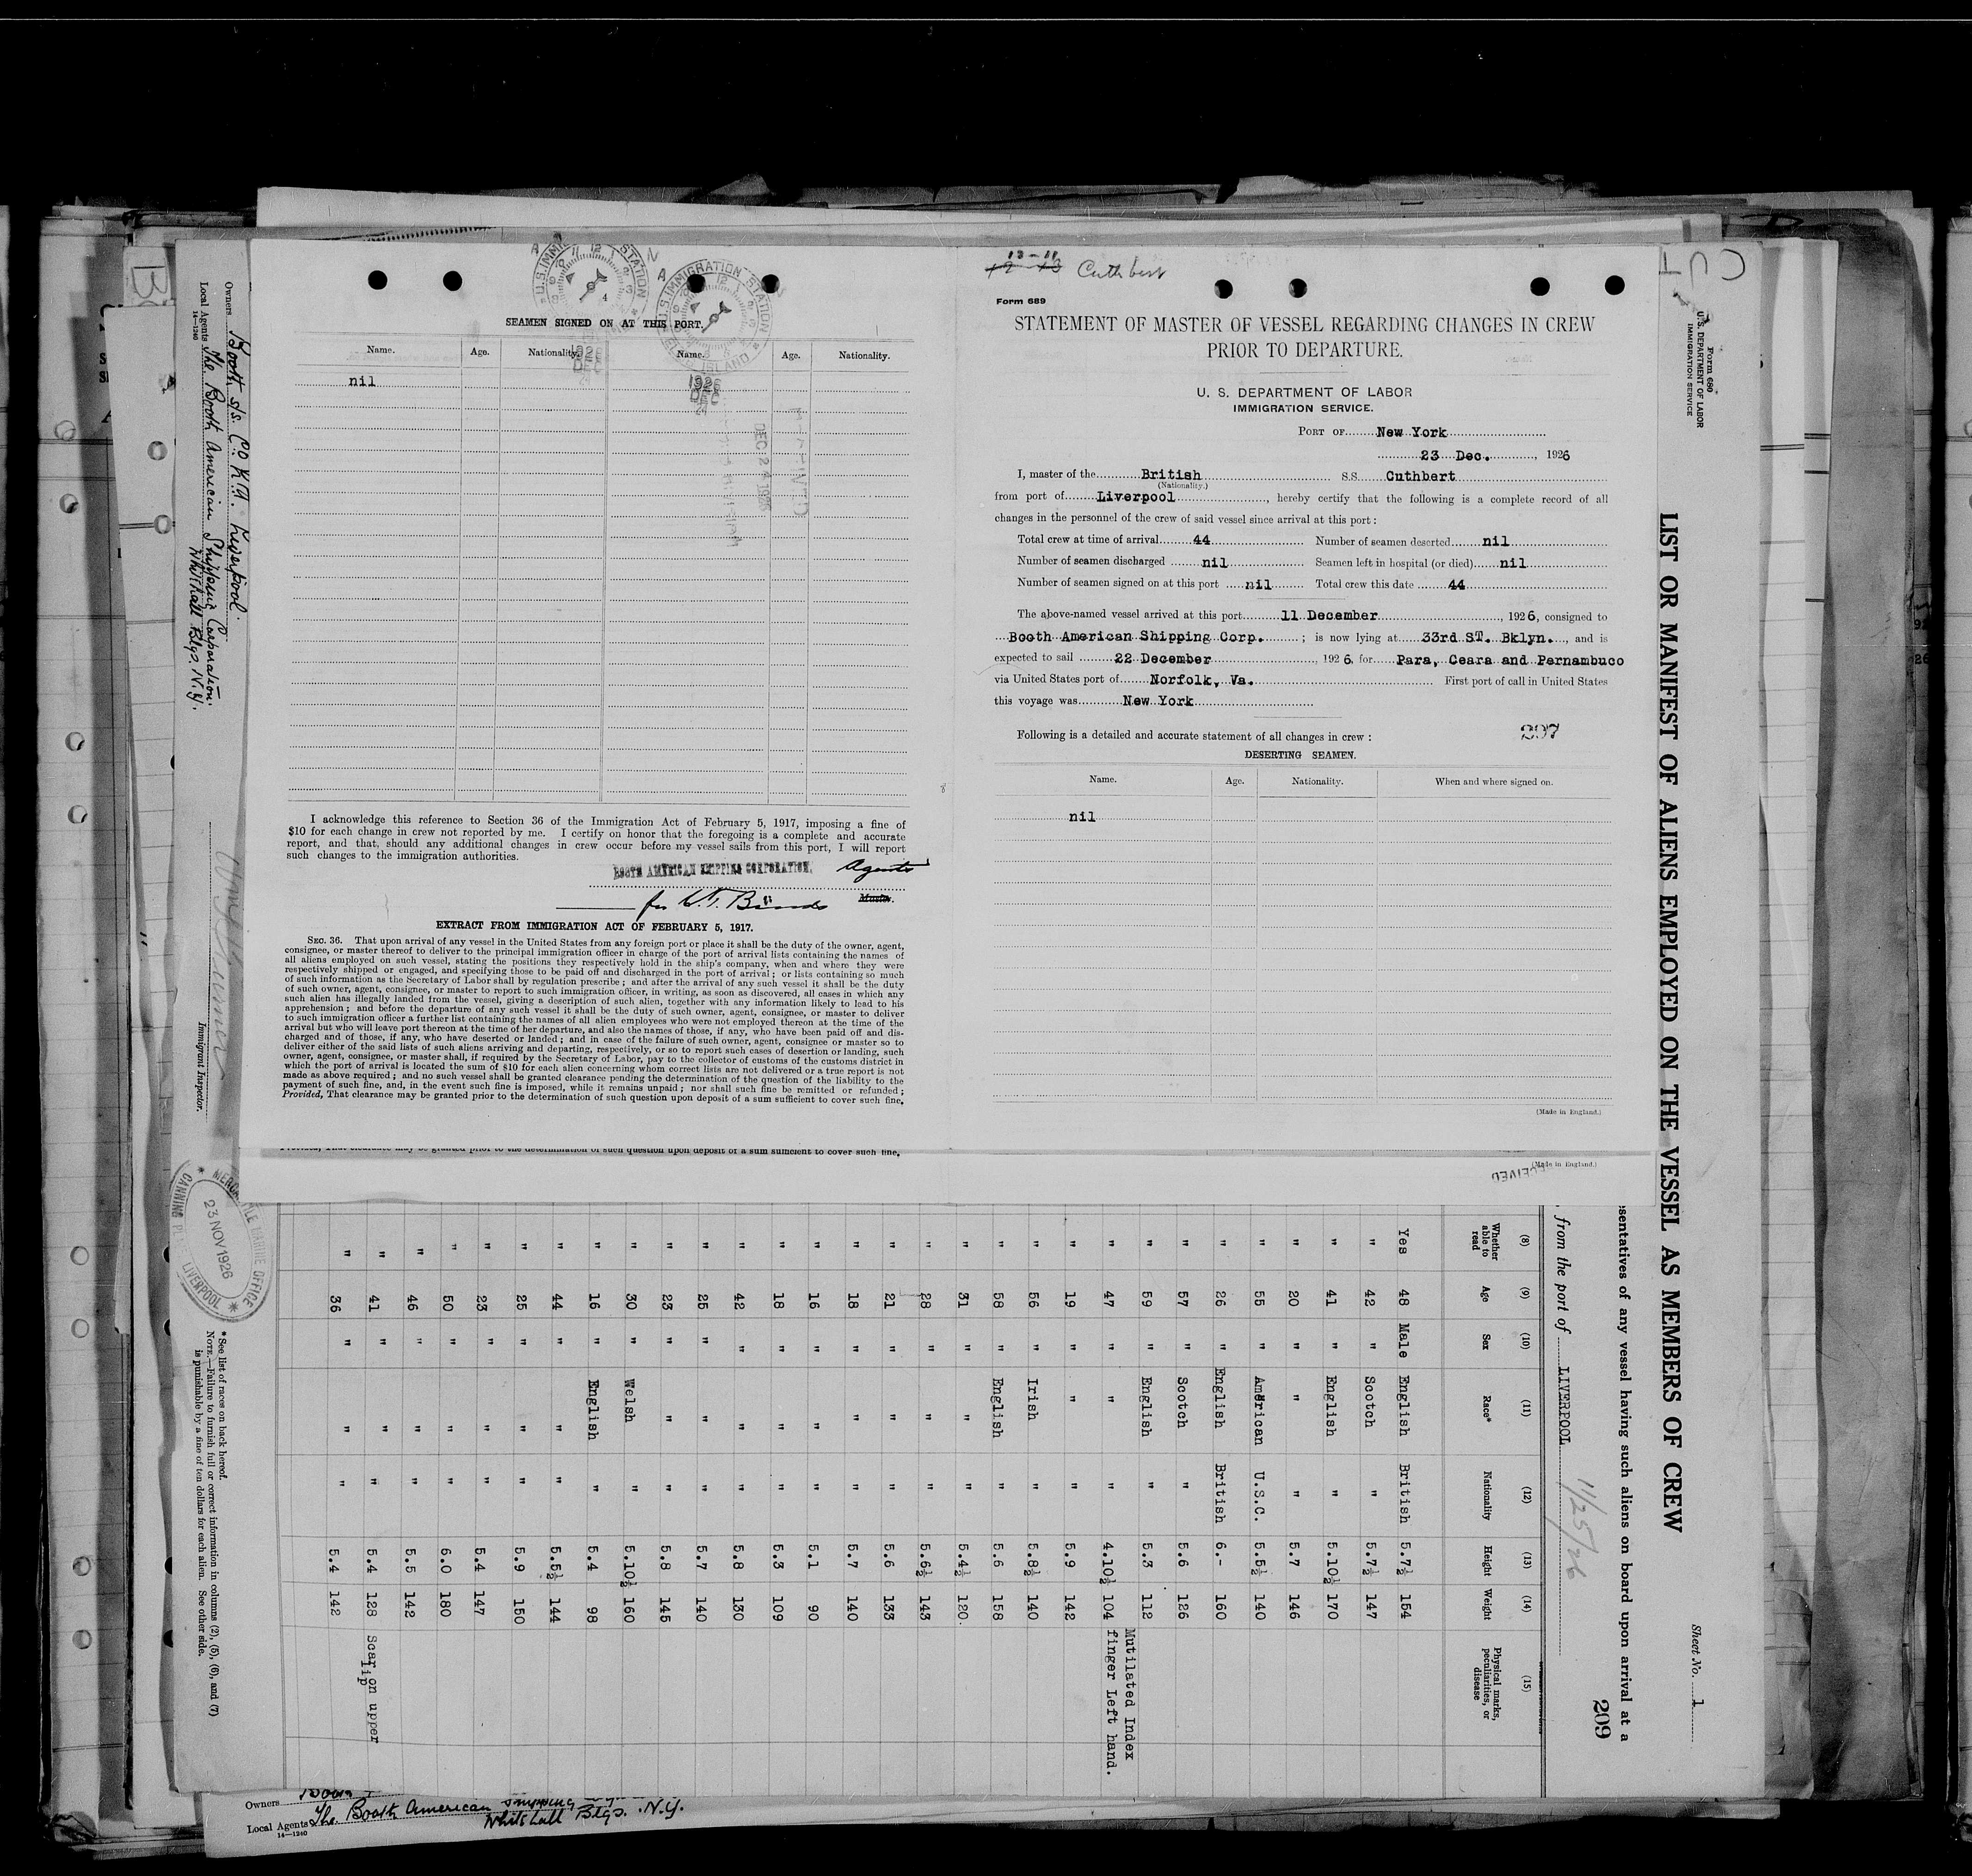 U.S. IMMIGRATION STATION
U.S. IMMIGRATION STATION
ELLIS ISLAND
SEAMEN SIGNED ON AT THIS PORT.
Name. Age. Nationality. Name. Age. Nationality.
nil
1926
DEC
1926
DEC
DEC 24 1926
I acknowledge this reference to Section 36 of the Immigration Act of February 5, 1917, imposing a fine of
$10 for each change in crew not reported by me. I certify on honor that the foregoing is a complete and accurate
report, and that, should any additional changes in crew occur before my vessel sails from this port, I will report
such changes to the immigration authorities.
BOOTH AMERICAN SHIPPING CORPORATION, Agents
Master.
EXTRACT FROM IMMIGRATION ACT OF FEBRUARY 5, 1917.
SEC. 36. That upon arrival of any vessel in the United States from any foreign port or place it shall be the duty of the owner, agent,
consignee, or master thereof to deliver to the principal immigration officer in charge of the port of arrival lists containing the names of
all aliens employed on such vessel, stating the positions they respectively hold in the ship's company, when and where they were
respectively shipped or engaged, and specifying those to be paid off and discharged in the port of arrival; or lists containing so much
of such information as the Secretary of Labor shall by regulation prescribe; and after the arrival of any such vessel it shall be the duty
of such owner, agent, consignee, or master to report to such immigration officer, in writing, as soon as discovered, all cases in which any
such alien has illegally landed from the vessel, giving a description of such alien, together with any information likely to lead to his
apprehension; and before the departure of any such vessel it shall be the duty of such owner, agent, consignee, or master to deliver
to such immigration officer a further list containing the names of all alien employees who were not employed thereon at the time of the
arrival but who will leave port thereon at the time of her departure, and also the names of those, if any, who have been paid off and dis-
charged and of those, if any, who have deserted or landed; and in case of the failure of such owner, agent, consignee or master so to
deliver either of the said lists of such aliens arriving and departing, respectively, or so to report such cases of desertion or landing, such
owner, agent, consignee, or master shall, if required by the Secretary of Labor, pay to the collector of customs of the customs district in
which the port of arrival is located the sum of $10 for each alien concerning whom correct lists are not delivered or a true report is not
made as above required; and no such vessel shall be granted clearance pending the determination of the question of the liability to the
payment of such fine, and, in the event such fine is imposed, while it remains unpaid; nor shall such fine be remitted or refunded;
Provided, That clearance may be granted prior to the determination of such question upon deposit of a sum sufficient to cover such fine,
Provided, That clearance may be granted prior to the determination of such question upon deposit of a sum sufficient to cover such fine,
13-11
Cuthbert
Form 689
STATEMENT OF MASTER OF VESSEL REGARDING CHANGES IN CREW
PRIOR TO DEPARTURE.
U. S. DEPARTMENT OF LABOR
IMMIGRATION SERVICE.
PORT OF New York
23 Dec. , 1926
I, master of the British S.S. Cuthbert
(Nationality.)
from port of Liverpool , hereby certify that the following is a complete record of all
changes in the personnel of the crew of said vessel since arrival at this port:
Total crew at time of arrival 44 Number of seamen deserted nil
Number of seamen discharged nil Seamen left in hospital (or died) nil
Number of seamen signed on at this port nil Total crew this date 44
The above-named vessel arrived at this port 11 December , 1926, consigned to
Booth American Shipping Corp. ; is now lying at 33rd ST. Bklyn. , and is
expected to sail 22 December , 1926, for Para, Ceara and Pernambuco
via United States port of Norfolk, Va. First port of call in United States
this voyage was New York
297
Following is a detailed and accurate statement of all changes in crew:
DESERTING SEAMEN.
Name. Age. Nationality. When and where signed on.
nil
(Made in England.)
(Made in England.)
RECEIVED
Form 680
U.S. DEPARTMENT OF LABOR
IMMIGRATION SERVICE
Sheet No. 1
LIST OR MANIFEST OF ALIENS EMPLOYED ON THE VESSEL AS MEMBERS OF CREW
sentatives of any vessel having such aliens on board upon arrival at a
209
, from the port of LIVERPOOL
11/25/26
(8) (9) (10) (11) (12) (13) (14) (15)
Whether able to read Age Sex Race* Nationality Height Weight Physical marks, peculiarities, or disease
Yes 48 Male English British 5.7½ 154
" 42 " Scotch " 5.7½ 147
" 41 " English " 5.10½ 170
" 20 " " " 5.7 146
" 55 " American U.S.C. 5.5½ 140
" 26 " English British 6.- 160
" 57 " Scotch " 5.6 126
" 59 " English " 5.3 112
" 47 " " " 4.10½ 104 Mutilated Index finger Left hand.
" 19 " " " 5.9 142
" 56 " Irish " 5.8½ 140
" 58 " English " 5.6 158
" 31 " " " 5.4½ 120.
" 28 " " " 5.6½ 143
" 21 " " " 5.6 133
" 18 " " " 5.7 140
" 16 " " " 5.1 90
" 18 " " " 5.3 109
" 42 " " " 5.8 130
" 25 " " " 5.7 140
" 23 " " " 5.8 145
" 30 " Welsh " 5.10½ 160
" 16 " English " 5.4 98
" 44 " " " 5.5½ 144
" 25 " " " 5.9 150
" 23 " " " 5.4 147
" 50 " " " 6.0 180
" 46 " " " 5.5 142
" 41 " " " 5.4 128 Scar on upper lip
" 36 " " " 5.4 142
Owners Booth s/s. Co Ltd. Liverpool.
Local Agents The Booth American Shipping Corporation.
Whitehall Bldgs. N.Y.
14—1240
Immigrant Inspector.
MERCANTILE MARINE OFFICE
23 NOV 1926
CANNING PLACE LIVERPOOL
* See list of races on back hereof.
NOTE.—Failure to furnish full or correct information in columns (2), (5), (6), and (7)
is punishable by a fine of ten dollars for each alien. See other side.
Owners
Local Agents The Booth American Shipping
Whitehall Bldgs. N.Y.
14—1240